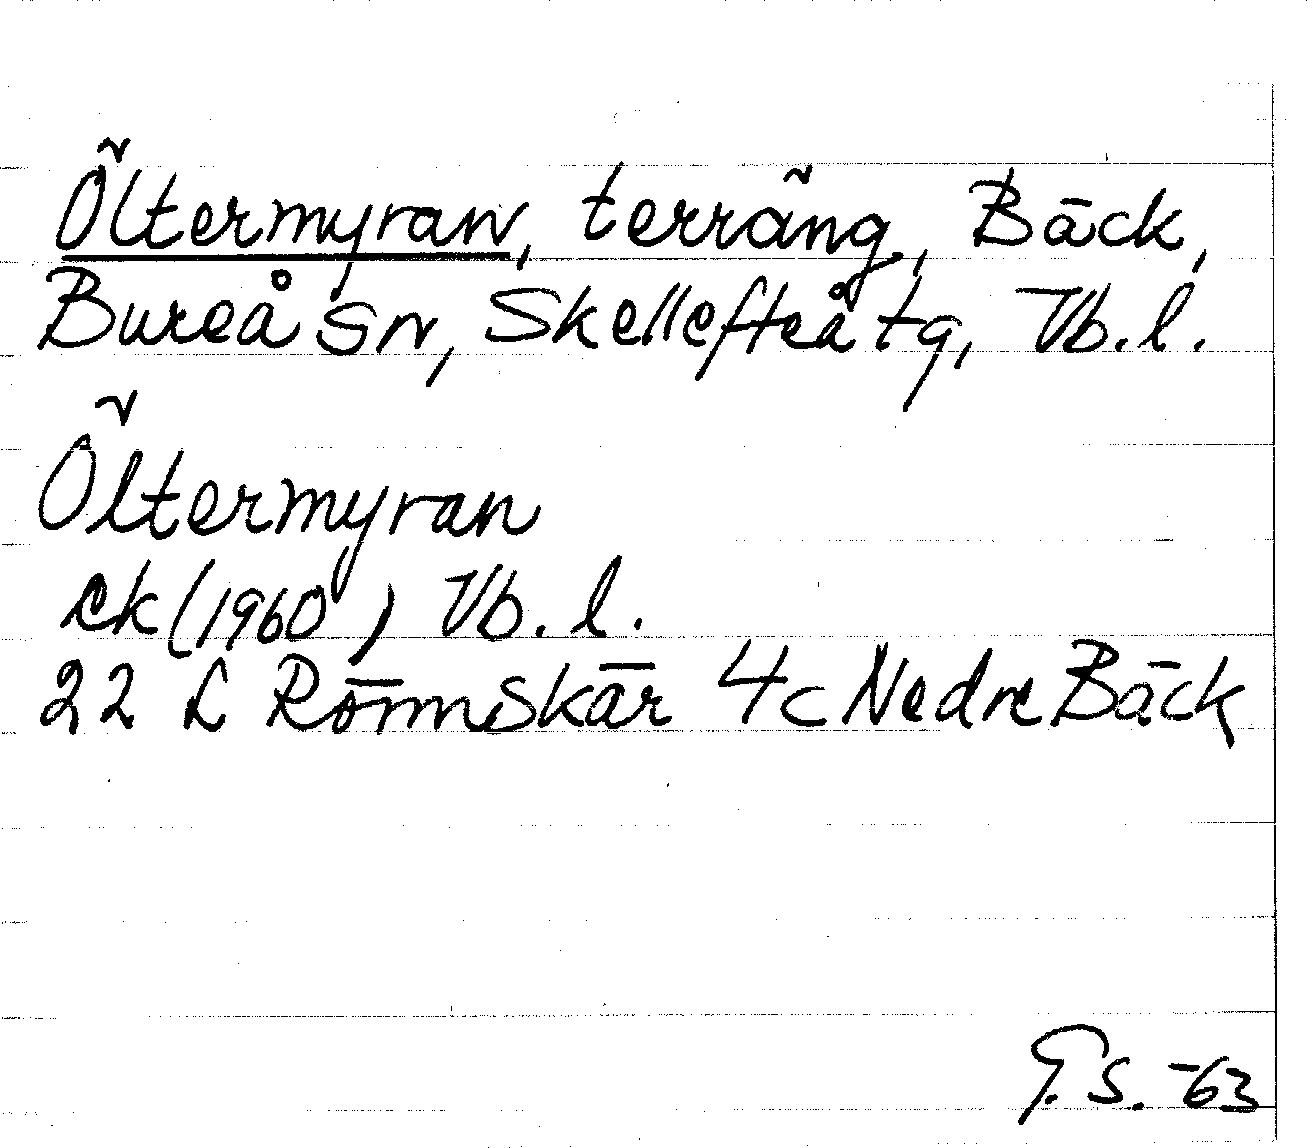 Öltermyran, terräng, Bäck,
Bureå sn, Skellefteå tg, Vb. l.
Öltermyran
ek (1960) Vb. l.
22 L Rönnskär 4c Nedre Bäck
G. S. -63